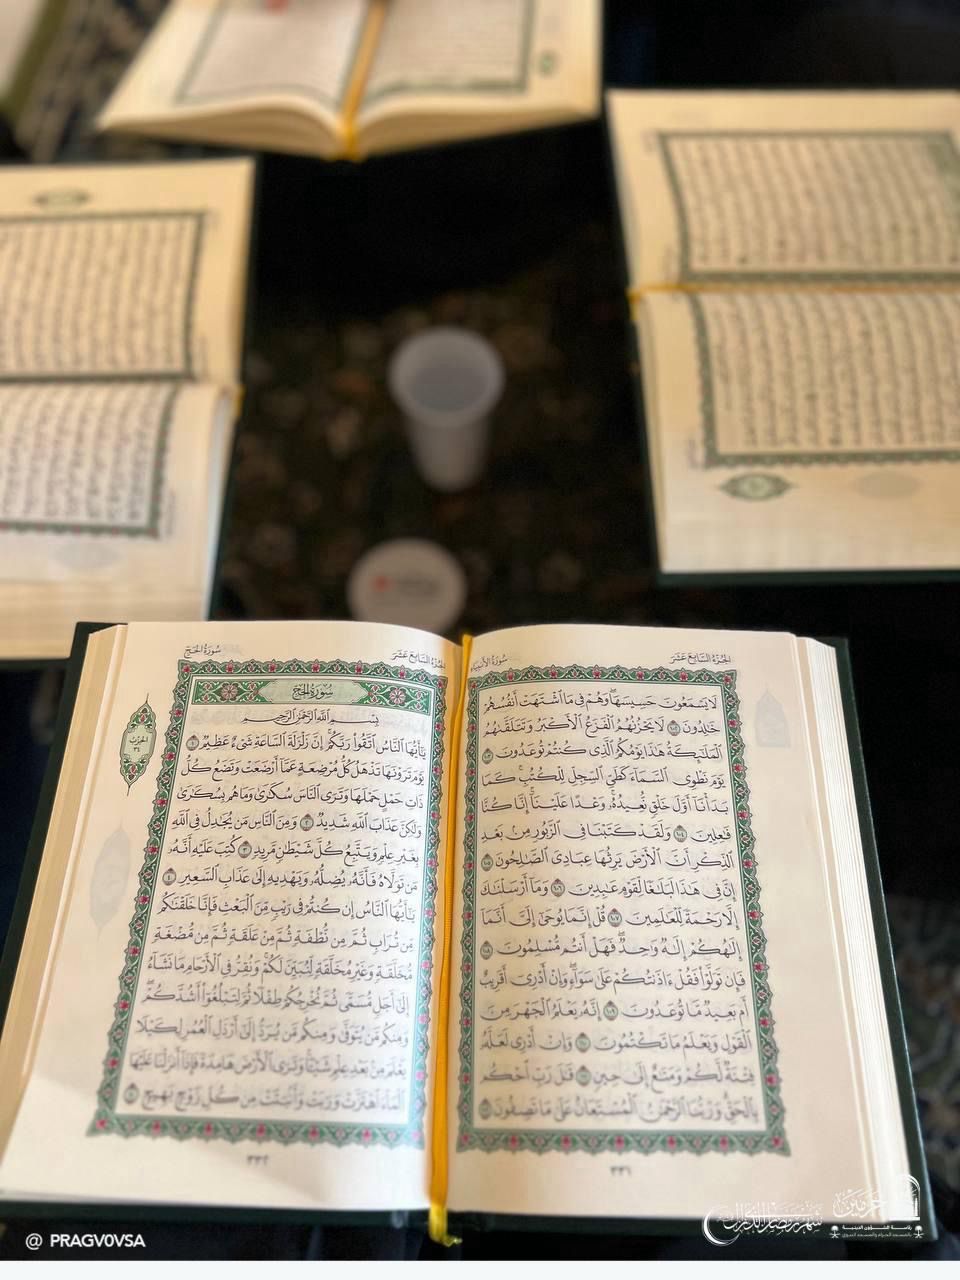 الجزء السابع عشر
سورة الأنبياء
لَا يَسْمَعُونَ حَسِيسَهَا وَهُمْ فِي مَا اشْتَهَتْ أَنفُسُهُمْ
خَالِدُونَ ١٠٢ لَا يَحْزُنُهُمُ الْفَزَعُ الْأَكْبَرُ وَتَتَلَقَّاهُمُ
الْمَلَائِكَةُ هَذَا يَوْمُكُمُ الَّذِي كُنتُمْ تُوعَدُونَ ١٠٣
يَوْمَ نَطْوِي السَّمَاءَ كَطَيِّ السِّجِلِّ لِلْكُتُبِ كَمَا
بَدَأْنَا أَوَّلَ خَلْقٍ نُّعِيدُهُ وَعْدًا عَلَيْنَا إِنَّا كُنَّا
فَاعِلِينَ ١٠٤ وَلَقَدْ كَتَبْنَا فِي الزَّبُورِ مِن بَعْدِ
الذِّكْرِ أَنَّ الْأَرْضَ يَرِثُهَا عِبَادِيَ الصَّالِحُونَ ١٠٥
إِنَّ فِي هَذَا لَبَلَاغًا لِّقَوْمٍ عَابِدِينَ ١٠٦ وَمَا أَرْسَلْنَاكَ
إِلَّا رَحْمَةً لِّلْعَالَمِينَ ١٠٧ قُلْ إِنَّمَا يُوحَى إِلَيَّ أَنَّمَا
إِلَهُكُمْ إِلَهٌ وَاحِدٌ فَهَلْ أَنتُم مُّسْلِمُونَ ١٠٨
فَإِن تَوَلَّوْا فَقُلْ ءَاذَنتُكُمْ عَلَى سَوَاءٍ وَإِنْ أَدْرِي أَقَرِيبٌ
أَم بَعِيدٌ مَّا تُوعَدُونَ ١٠٩ إِنَّهُ يَعْلَمُ الْجَهْرَ مِنَ
الْقَوْلِ وَيَعْلَمُ مَا تَكْتُمُونَ ١١٠ وَإِنْ أَدْرِي لَعَلَّهُ
فِتْنَةٌ لَّكُمْ وَمَتَاعٌ إِلَى حِينٍ ١١١ قَالَ رَبِّ احْكُم
بِالْحَقِّ وَرَبُّنَا الرَّحْمَنُ الْمُسْتَعَانُ عَلَى مَا تَصِفُونَ ١١٢
٣٣١
الجزء السابع عشر
سورة الحج
سُورَةُ الحَجِّ
الحزب
٣٤
بِسْمِ اللَّهِ الرَّحْمَنِ الرَّحِيمِ
يَا أَيُّهَا النَّاسُ اتَّقُوا رَبَّكُمْ إِنَّ زَلْزَلَةَ السَّاعَةِ شَيْءٌ عَظِيمٌ ١
يَوْمَ تَرَوْنَهَا تَذْهَلُ كُلُّ مُرْضِعَةٍ عَمَّا أَرْضَعَتْ وَتَضَعُ كُلُّ
ذَاتِ حَمْلٍ حَمْلَهَا وَتَرَى النَّاسَ سُكَارَى وَمَا هُم بِسُكَارَى
وَلَكِنَّ عَذَابَ اللَّهِ شَدِيدٌ ٢ وَمِنَ النَّاسِ مَن يُجَادِلُ فِي اللَّهِ
بِغَيْرِ عِلْمٍ وَيَتَّبِعُ كُلَّ شَيْطَانٍ مَّرِيدٍ ٣ كُتِبَ عَلَيْهِ أَنَّهُ
مَن تَوَلَّاهُ فَأَنَّهُ يُضِلُّهُ وَيَهْدِيهِ إِلَى عَذَابِ السَّعِيرِ ٤
يَا أَيُّهَا النَّاسُ إِن كُنتُمْ فِي رَيْبٍ مِّنَ الْبَعْثِ فَإِنَّا خَلَقْنَاكُم
مِّن تُرَابٍ ثُمَّ مِن نُّطْفَةٍ ثُمَّ مِنْ عَلَقَةٍ ثُمَّ مِن مُّضْغَةٍ
مُّخَلَّقَةٍ وَغَيْرِ مُخَلَّقَةٍ لِّنُبَيِّنَ لَكُمْ وَنُقِرُّ فِي الْأَرْحَامِ مَا نَشَاءُ
إِلَى أَجَلٍ مُّسَمًّى ثُمَّ نُخْرِجُكُمْ طِفْلًا ثُمَّ لِتَبْلُغُوا أَشُدَّكُمْ
وَمِنكُم مَّن يُتَوَفَّى وَمِنكُم مَّن يُرَدُّ إِلَى أَرْذَلِ الْعُمُرِ لِكَيْلَا
يَعْلَمَ مِن بَعْدِ عِلْمٍ شَيْئًا وَتَرَى الْأَرْضَ هَامِدَةً فَإِذَا أَنزَلْنَا عَلَيْهَا
الْمَاءَ اهْتَزَّتْ وَرَبَتْ وَأَنبَتَتْ مِن كُلِّ زَوْجٍ بَهِيجٍ ٥
٣٣٢
شهر رمضان المبارك
حرمين
رئاسة الشؤون الدينية
بالمسجد الحرام والمسجد النبوي
@ PRAGVOVSA